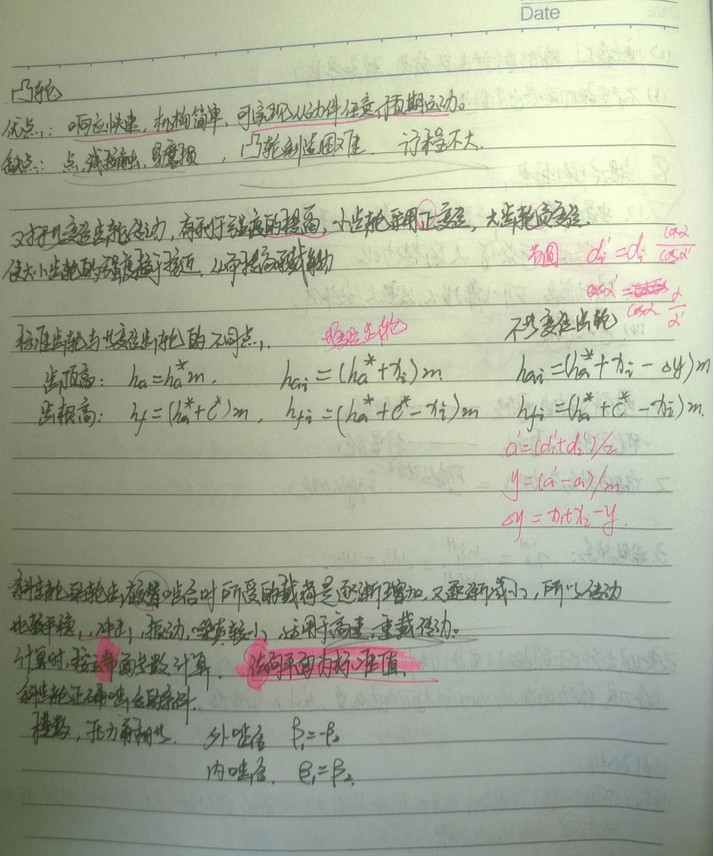 Date
凸轮
优点:响应快速,机构简单,可实现从动件任意预期运动。
缺点:点,线接触,易磨损,凸轮制造困难,行程不大.
对于变位齿轮传动,有利于强度的提高,小齿轮采用正变位,大齿轮负变位.
使大小齿轮的强度趋于接近,从而提高承载能力
节圆 di' = di cosα/cosα'
标准齿轮与变位齿轮的不同点.
变位齿轮
不 变位齿轮
齿顶高: ha=ha*m. hai=(ha*+xi)m hai=(ha*+xi-σy)m
齿根高: hf=(ha*+c*)m, hfi=(ha*+c*-xi)m hfi=(ha*+c*-xi)m.
a'=(d1'+d2')/2
y=(a'-a)/m
σy=x1+x2-y.
斜齿轮 轮齿 啮合时所受的载荷是逐渐增加,又逐渐减小,所以传动
比较平稳,冲击,振动,噪声较小,适用于高速,重载传动。
计算时,按端面参数计算. 法向平面内为标准值.
斜齿轮正确啮合的条件.
模数,压力角相等. 外啮合 β1=-β2
内啮合. β1=β2.